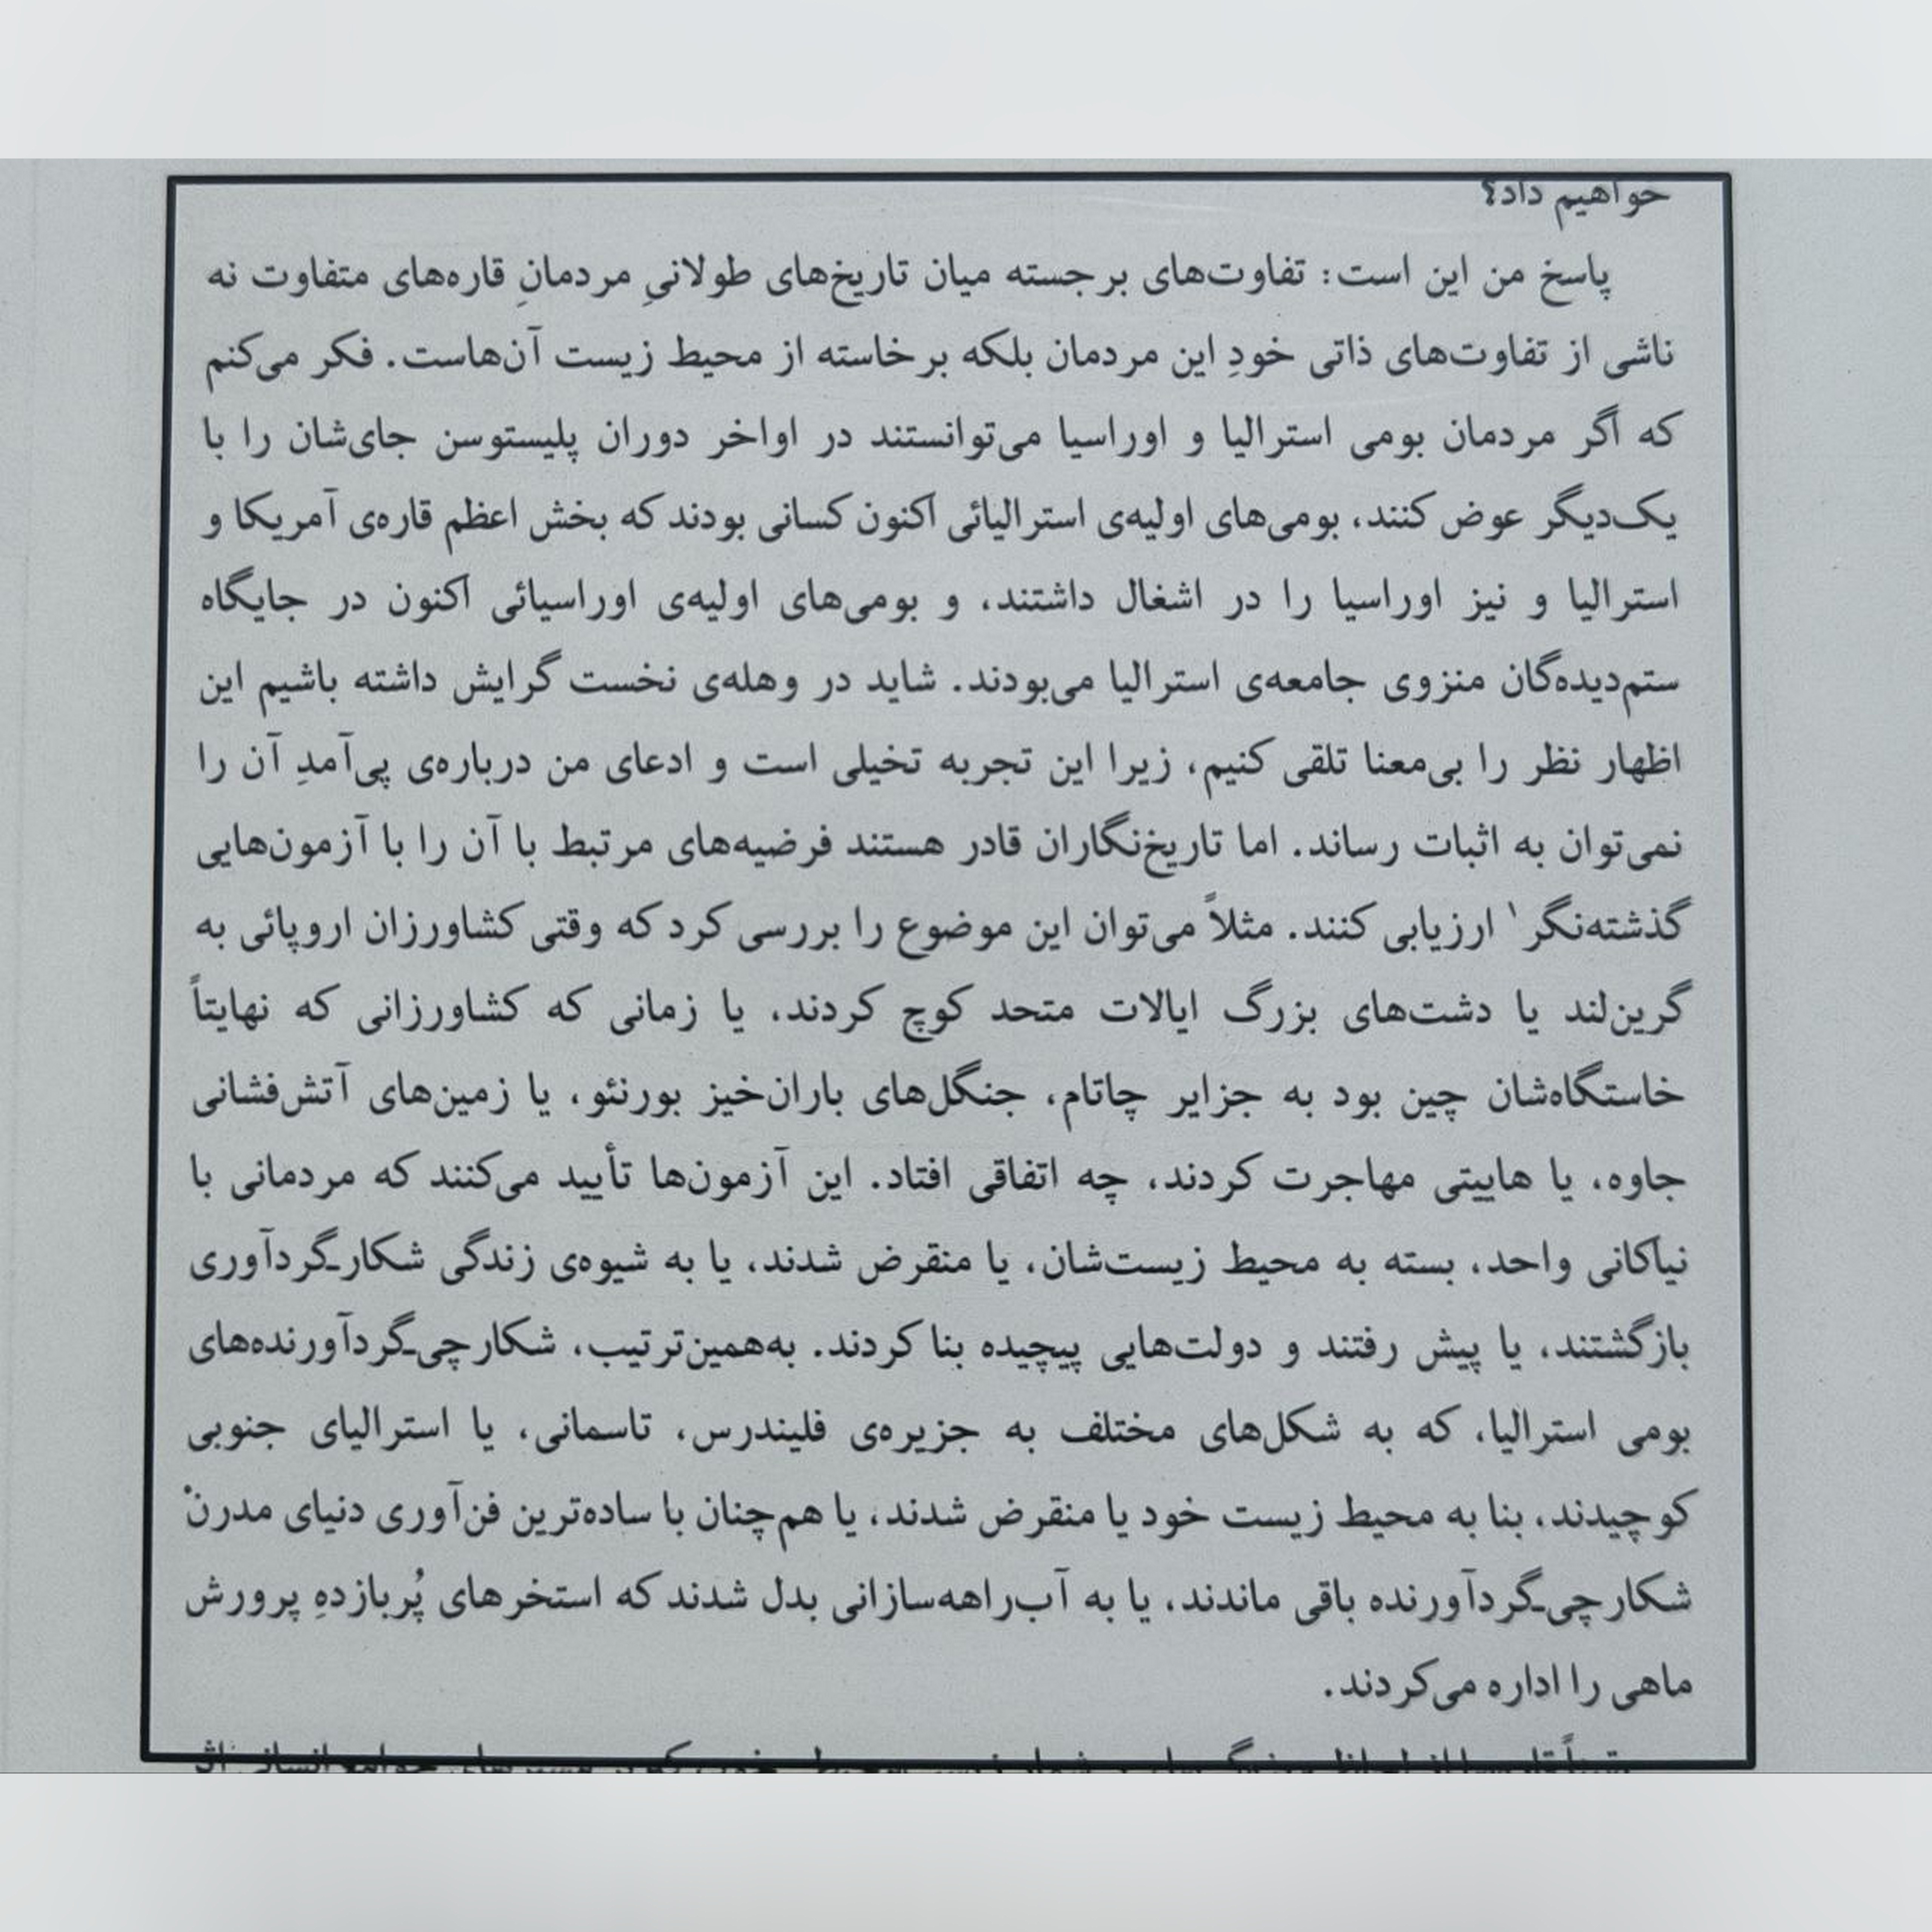 خواهیم داد؟
پاسخ من این است: تفاوت‌های برجسته میان تاریخ‌های طولانیِ مردمانِ قاره‌های متفاوت نه
ناشی از تفاوت‌های ذاتی خودِ این مردمان بلکه برخاسته از محیط زیست آن‌هاست. فکر می‌کنم
که اگر مردمان بومی استرالیا و اوراسیا می‌توانستند در اواخر دوران پلیستوسن جای‌شان را با
یک‌دیگر عوض کنند، بومی‌های اولیه‌ی استرالیائی اکنون کسانی بودند که بخش اعظم قاره‌ی آمریکا و
استرالیا و نیز اوراسیا را در اشغال داشتند، و بومی‌های اولیه‌ی اوراسیائی اکنون در جایگاه
ستم‌دیده‌گان منزوی جامعه‌ی استرالیا می‌بودند. شاید در وهله‌ی نخست گرایش داشته باشیم این
اظهار نظر را بی‌معنا تلقی کنیم، زیرا این تجربه تخیلی است و ادعای من درباره‌ی پی‌آمدِ آن را
نمی‌توان به اثبات رساند. اما تاریخ‌نگاران قادر هستند فرضیه‌های مرتبط با آن را با آزمون‌هایی
گذشته‌نگر۱ ارزیابی کنند. مثلاً می‌توان این موضوع را بررسی کرد که وقتی کشاورزان اروپائی به
گرین‌لند یا دشت‌های بزرگ ایالات متحد کوچ کردند، یا زمانی که کشاورزانی که نهایتاً
خاستگاه‌شان چین بود به جزایر چاتام، جنگل‌های باران‌خیز بورنئو، یا زمین‌های آتش‌فشانی
جاوه، یا هاییتی مهاجرت کردند، چه اتفاقی افتاد. این آزمون‌ها تأیید می‌کنند که مردمانی با
نیاکانی واحد، بسته به محیط زیست‌شان، یا منقرض شدند، یا به شیوه‌ی زندگی شکارـگردآوری
بازگشتند، یا پیش رفتند و دولت‌هایی پیچیده بنا کردند. به‌همین‌ترتیب، شکارچی‌ـگردآورنده‌های
بومی استرالیا، که به شکل‌های مختلف به جزیره‌ی فلیندرس، تاسمانی، یا استرالیای جنوبی
کوچیدند، بنا به محیط زیست خود یا منقرض شدند، یا هم‌چنان با ساده‌ترین فن‌آوری دنیای مدرنْ
شکارچی‌ـگردآورنده باقی ماندند، یا به آب‌راهه‌سازانی بدل شدند که استخرهای پُربازدهِ پرورش
ماهی را اداره می‌کردند.